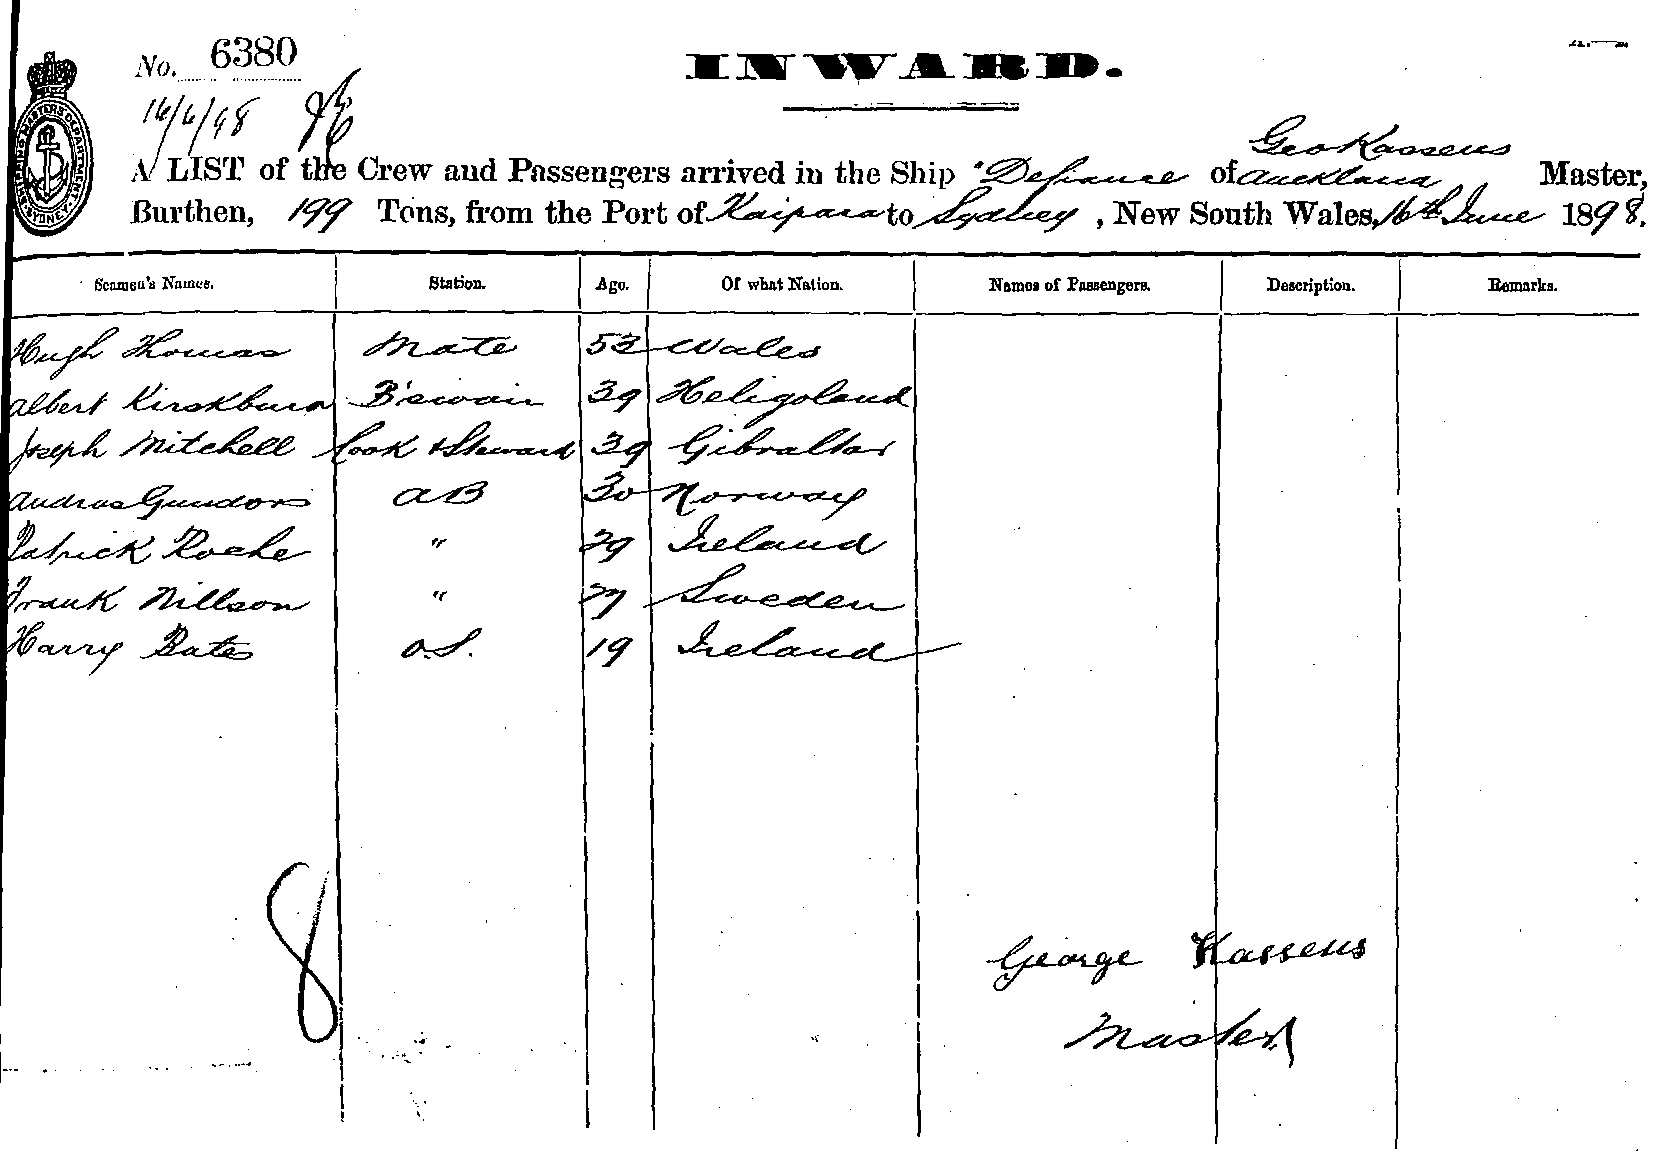 No. 6380
INWARD.
16/6/98
Geo Kassens
A LIST of the Crew and Passengers arrived in the Ship "Defiance of Auckland, Master,
Burthen, 199 Tons, from the Port of Kaipara to Sydney, New South Wales, 16th June 1898.
Seamen's Names. Station. Age. Of what Nation. Names of Passengers. Description. Remarks.
Hugh Thomas Mate 53 Wales
Albert Kirskburn B'swain 39 Heligoland
Joseph Mitchell Cook & Steward 39 Gibraltar
Andras Gundors AB 30 Norway
Patrick Roche " 29 Ireland
Frank Nillson " 27 Sweden
Harry Bates O.S. 19 Ireland
8
George Kassens
Master
SHIPPING MASTER'S DEPARTMENT SYDNEY